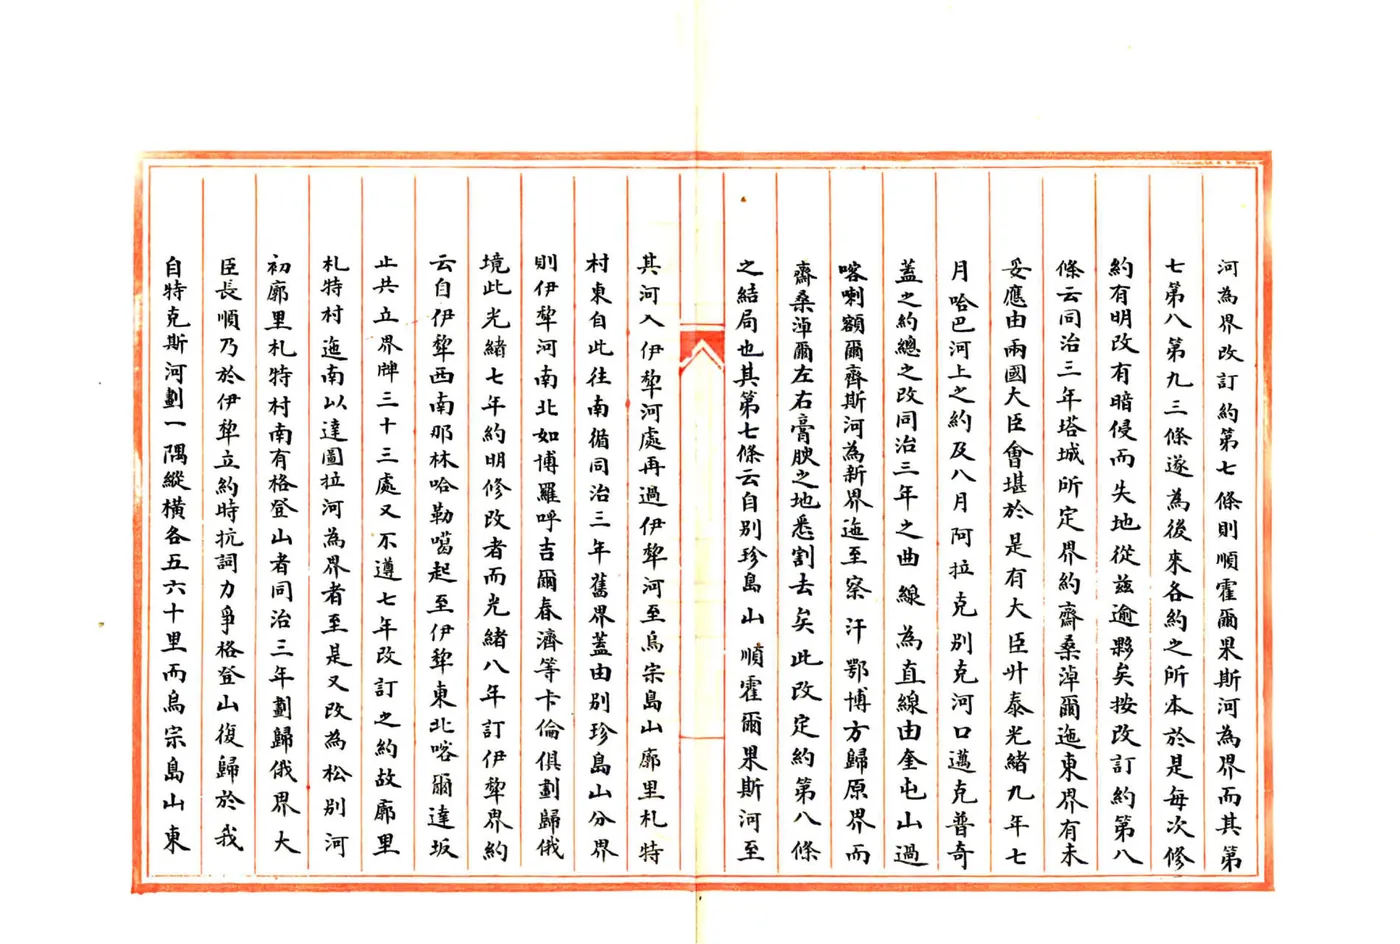 河為界改訂約第七條則順霍爾果斯河為界而其第
七第八第九三條遂為後來各約之所本於是每次修
約有明改有暗侵而失地從茲逾夥矣按改訂約第八
條云同治三年塔城所定界約齋桑淖爾迤東界有未
妥應由兩國大臣會堪於是有大臣升泰光緒九年七
月哈巴河上之約及八月阿拉克別克河口邁克普奇
蓋之約總之改同治三年之曲線為直線由奎屯山過
喀喇額爾齊斯河為新界迤至察汗鄂博方歸原界而
齋桑淖爾左右膏腴之地悉割去矣此改定約第八條
之結局也其第七條云自別珍島山順霍爾果斯河至
其河入伊犂河處再過伊犂河至烏宗島山廓里札特
村東自此往南循同治三年舊界蓋由別珍島山分界
則伊犂河南北如博羅呼吉爾春濟等卡倫俱劃歸俄
境此光緒七年約明修改者而光緒八年訂伊犂界約
云自伊犂西南那林哈勒噶起至伊犂東北喀爾達坂
止共立界牌三十三處又不遵七年改訂之約故廓里
札特村迤南以達圖拉河為界者至是又改為松別河
初廓里札特村南有格登山者同治三年劃歸俄界大
臣長順乃於伊犂立約時抗詞力爭格登山復歸於我
自特克斯河劃一隅縱橫各五六十里而烏宗島山東